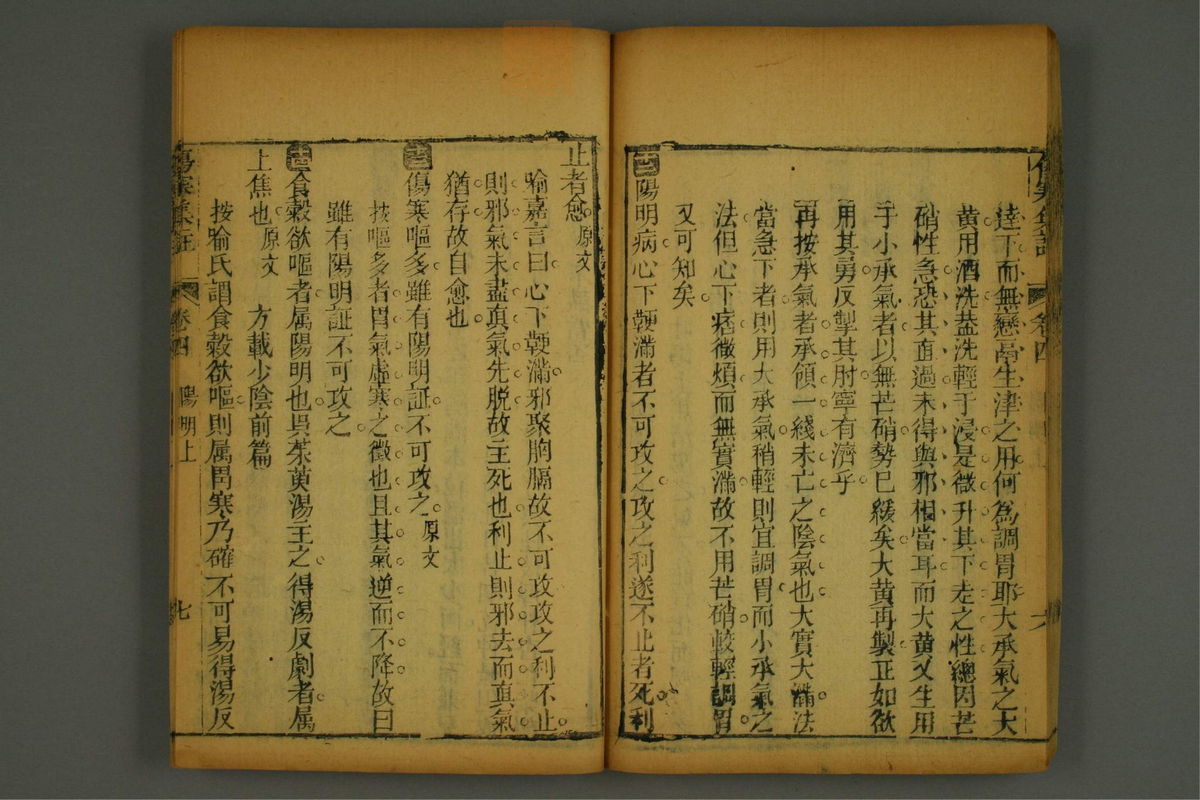 達下而無戀鬲生津之用何為調胃耶大承氣之大
黃用酒洗蓋洗輕于浸是微升其下走之性總因芒
硝性急恐其直過未得與邪相當耳而大黃又生用
于小承氣者以無芒硝勢已緩矣大黃再製正如欲
用其勇反掣其肘寧有濟乎
再按承氣者承領一綫未亡之陰氣也大實大滿法
當急下者則用大承氣稍輕則宜調胃而小承氣之
法但心下痞微煩而無實滿故不用芒硝較輕調胃
又可知矣
陽明病心下鞕滿者不可攻之攻之利遂不止者死利
傷寒集註 卷四 六
止者愈 原文
喻嘉言曰心下鞕滿邪聚胸膈故不可攻攻之利不止
則邪氣未盡真氣先脫故主死也利止則邪去而真氣
猶存故自愈也
傷寒嘔多雖有陽明証不可攻之 原文
按嘔多者胃氣虛寒之徵也且其氣逆而不降故曰
雖有陽明証不可攻之
食穀欲嘔者屬陽明也吳茱萸湯主之得湯反劇者屬
上焦也 原文 方載少陰前篇
按喻氏謂食穀欲嘔則属胃寒乃確不可易得湯反
傷寒集註 卷四 陽明上 七